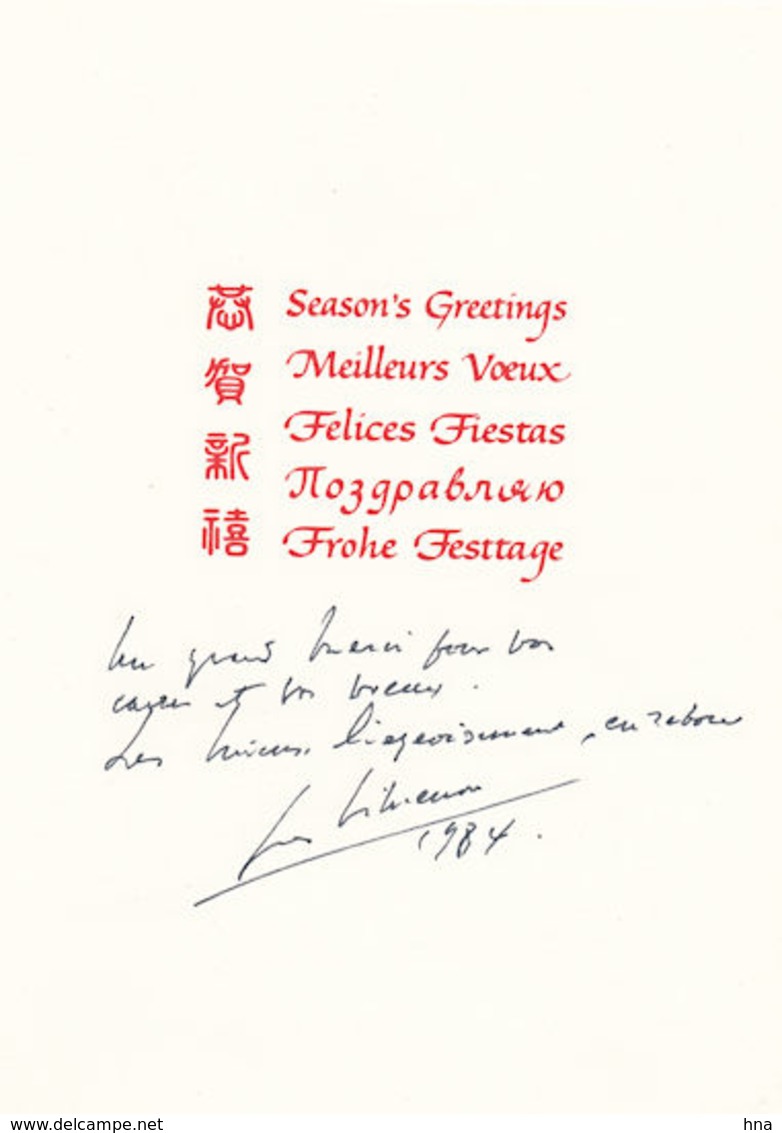 恭賀新禧
Season's Greetings
Meilleurs Vœux
Felices Fiestas
Поздравляю
Frohe Festtage
Un grand merci pour vos
et vos voeux.
Les miens, liegeoisement, en retour
1984.
www.delcampe.net
hna